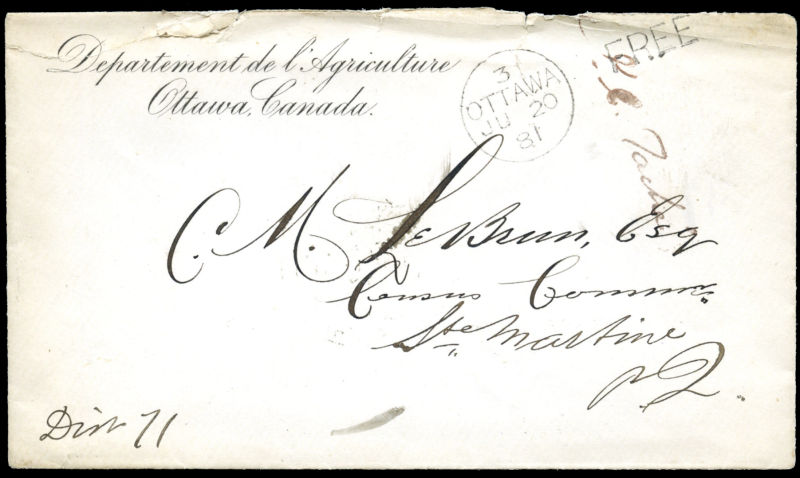 Departement de l'Agriculture
Ottawa, Canada.
3
OTTAWA
JU 20
81
FREE
C. M. LeBrun, Esq
Census Commr.
Ste Martine
P Q.
Dist 71